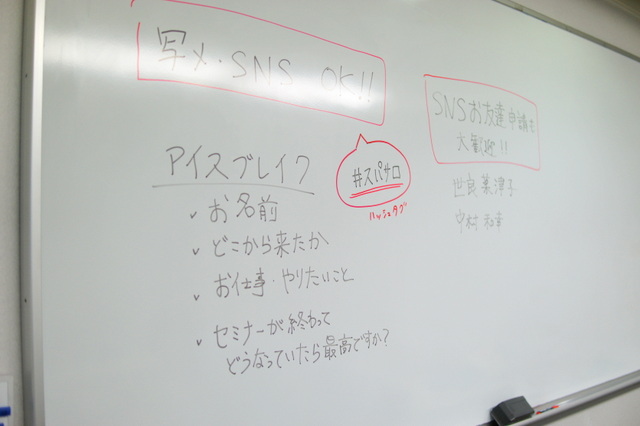 写メ・SNS OK!!
#スパサロ
ハッシュタグ
アイスブレイク
✓ お名前
✓ どこから来たか
✓ お仕事・やりたいこと
✓ セミナーが終わって
どうなっていたら最高ですか?
SNSお友達申請も
大歓迎!!
世良菜津子
中村和幸